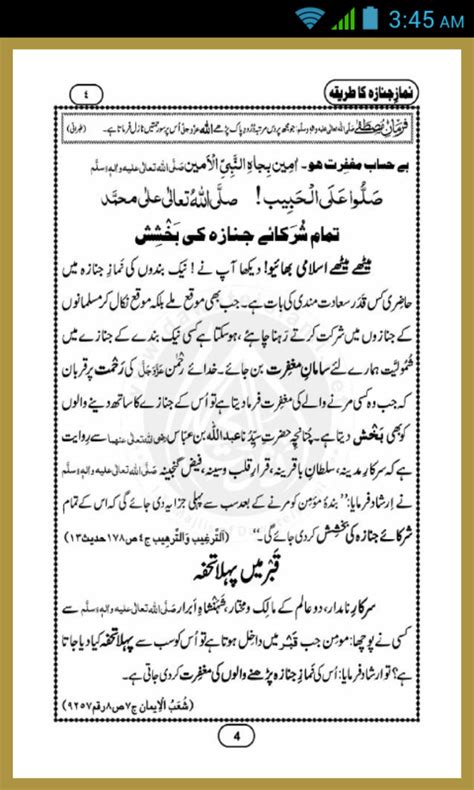 3:45 AM
نمازِ جنازہ کا طریقہ
٤
فرمانِ مصطفےٰ صلی اللہ تعالیٰ علیہ واٰلہٖ وسلم: جو مجھ پر دس مرتبہ دُرُودِ پاک پڑھے اللہ عزوجل اُس پر سو رحمتیں نازل فرماتا ہے۔ (طبرانی)
بے حساب مغفِرت ہو۔ اٰمین بِجاہِ النَّبِیِّ الْاَمین صَلَّی اللہُ تعالٰی علیہ واٰلہٖ وسلَّم
صَلُّوا عَلَی الْحَبِیب! صلَّی اللہُ تعالٰی علٰی محمَّد
تمام شُرَکائے جنازہ کی بَخْشِش
میٹھے میٹھے اسلامی بھائیو! دیکھا آپ نے! نیک بندوں کی نَمازِ جنازہ میں
حاضِری کس قَدَر سعادت مندی کی بات ہے۔ جب بھی موقع ملے بلکہ موقع نکال کر مسلمانوں
کے جنازوں میں شرکت کرتے رَہنا چاہئے، ہوسکتا ہے کسی نیک بندے کے جنازے میں
شُمُولیَّت ہمارے لئے سامانِ مغفِرت بن جائے۔ خدائے رَحْمٰن عَزَّوَجَلَّ کی رَحْمت پر قربان
کہ جب وہ کسی مرنے والے کی مغفِرت فرما دیتا ہے تو اُس کے جنازے کا ساتھ دینے والوں
کو بھی بَخْش دیتا ہے۔ چُنانچِہ حضرتِ سیِّدُنا عبداللہ بن عبّاس رضی اللہ تعالٰی عنہما سے رِوایت
ہے کہ سرکارِ مدینہ، سلطانِ باقرینہ، قرارِ قلب وسینہ، فیض گنجینہ صَلَّی اللہ تعالٰی علیہ واٰلہٖ وسلَّم
نے ارشاد فرمایا: ’’بندۂ مؤمِن کو مرنے کے بعد سب سے پہلی جزا یہ دی جائے گی کہ اس کے تمام
شُرَکائے جنازہ کی بَخْشِش کر دی جائے گی۔‘‘ (اَلتَّرغِیب وَالتَّرہِیب ج٤ ص١٧٨ حدیث١٣)
قَبْر میں پہلا تحفہ
سرکارِ نامدار، دو عالم کے مالِک ومختار، شَہَنْشاہِ اَبرار صَلَّی اللہ تعالٰی علیہ واٰلہٖ وسلَّم سے
کسی نے پوچھا: مومِن جب قَبْر میں داخِل ہوتا ہے تو اُس کو سب سے پہلا تحفہ کیا دیا جاتا
ہے؟ تو ارشاد فرمایا: اُس کی نَمازِ جنازہ پڑھنے والوں کی مغفِرت کر دی جاتی ہے۔
(شُعَبُ الْاِیمان ج٧ ص٨ رقم٩٢٥٧)
4